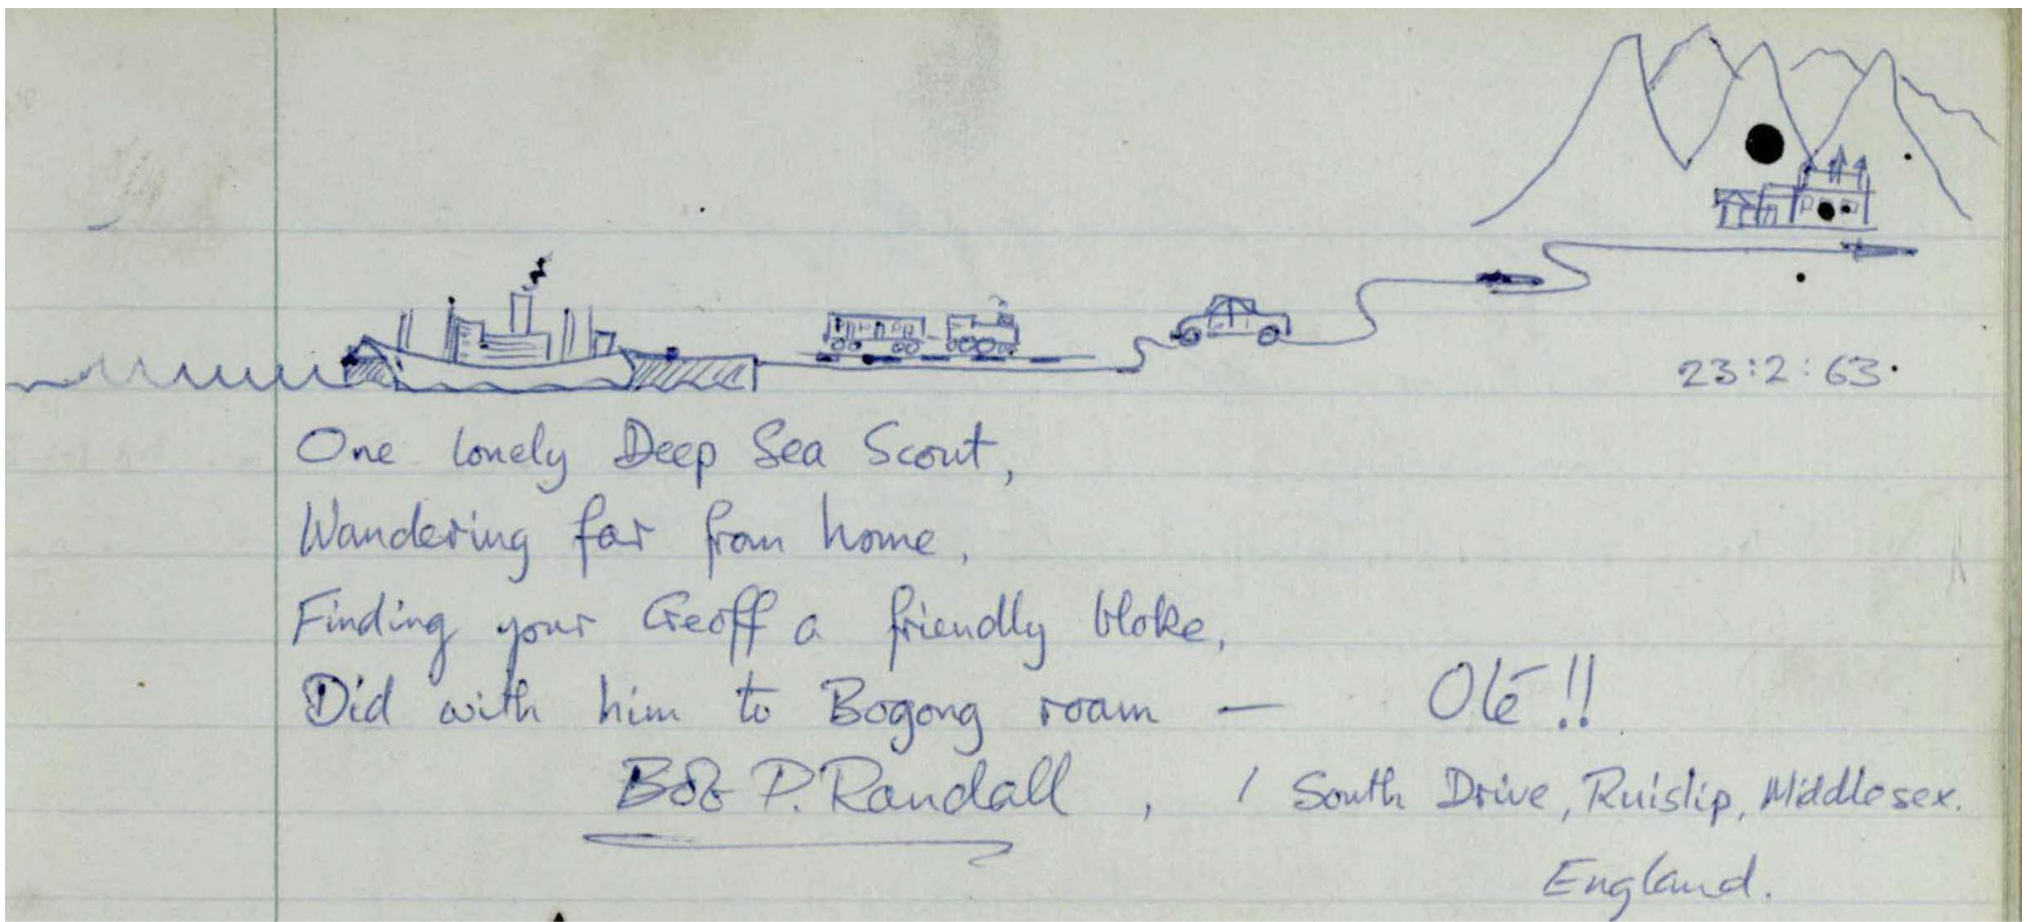 23:2:63.
One lonely Deep Sea Scout,
Wandering far from home,
Finding your Geoff a friendly bloke,
Did with him to Bogong roam — Olé!!
Bob P. Randall, 1 South Drive, Ruislip, Middlesex.
England.